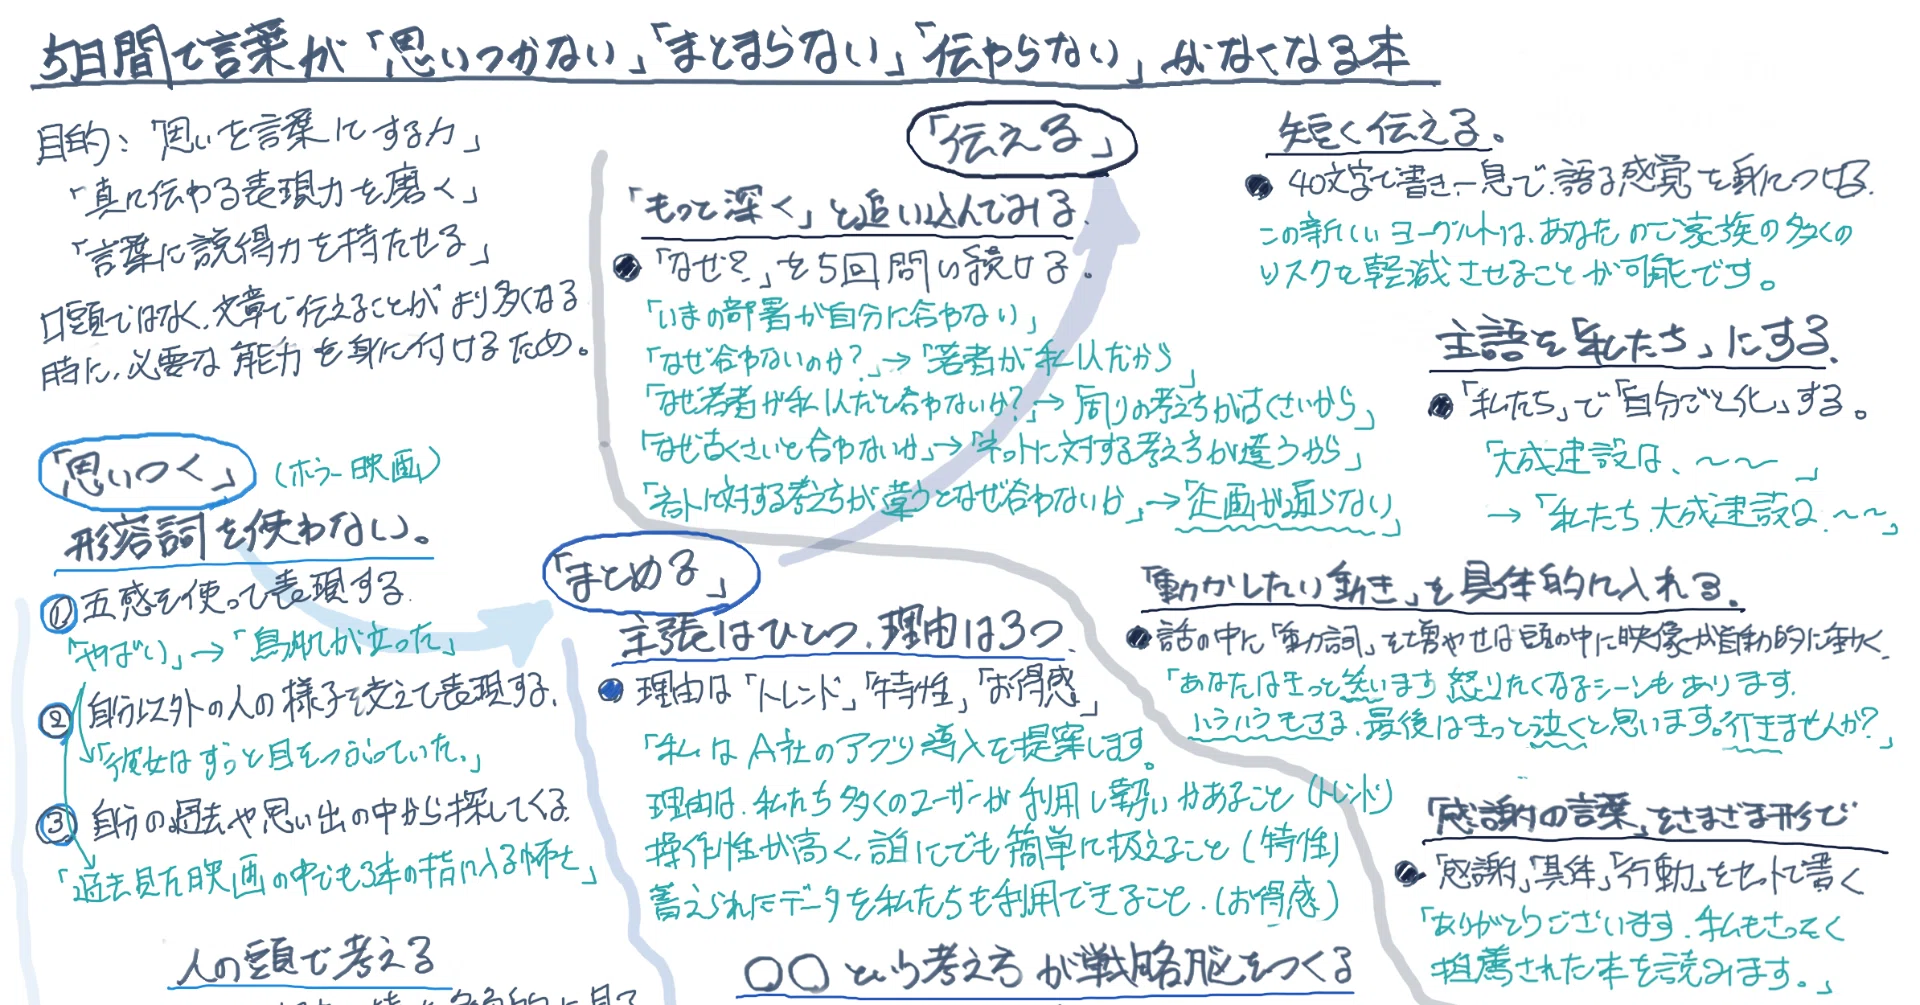 5日間で言葉が「思いつかない」「まとまらない」「伝わらない」がなくなる本
目的：「思いを言葉にする力」
「真に伝わる表現力を磨く」
「言葉に説得力を持たせる」
口頭ではなく、文章で伝えることがより多くなる
時に、必要な能力を身に付けるため。
「思いつく」
（ホラー映画）
形容詞を使わない。
① 五感を使って表現する。
「やばい」→「鳥肌が立った」
② 自分以外の人の様子を交えて表現する。
「彼女はずっと目をつぶっていた。」
③ 自分の過去や思い出の中から探してくる。
「過去見た映画の中でも3本の指に入る怖さ」
人の頭で考える
「まとめる」
主張はひとつ、理由は3つ
● 理由は「トレンド」「特性」「お得感」
「私はA社のアプリ導入を提案します。
理由は、私たち多くのユーザーが利用し勢いがあること（トレンド）
操作性が高く、誰にでも簡単に扱えること（特性）
蓄えられたデータを私たちも利用できること。（お得感）
○○という考え方が戦略脳をつくる
「伝える」
「もっと深く」と追い込んでみる。
● 「なぜ？」を5回問い続ける。
「いまの部署が自分に合わない」
「なぜ合わないのか？」→「若者が私1人だから」
「なぜ若者が私1人だと合わないか？」→「周りの考え方が古くさいから」
「なぜ古くさいと合わないか」→「ネットに対する考え方が違うから」
「ネットに対する考え方が違うとなぜ合わないか」→「企画が通らない」
短く伝える。
● 40文字で書き、一息で語る感覚を身につける。
この新しいヨーグルトは、あなたのご家族の多くの
リスクを軽減させることが可能です。
主語を「私たち」にする。
● 「私たち」で「自分ごと化」する。
「大成建設は、〜〜」
→「私たち、大成建設は、〜〜」
「動かしたい動き」を具体的に入れる。
● 話の中に「動詞」を増やせば頭の中に映像が自動的に動く。
「あなたはきっと笑います 怒りたくなるシーンもあります。
ハラハラもする、最後はきっと泣くと思います。行きませんか？」
「感謝の言葉」をさまざま形で
● 「感謝」「具体」「行動」をセットで書く
「ありがとうございます。私もさっそく
推薦された本を読みます。」